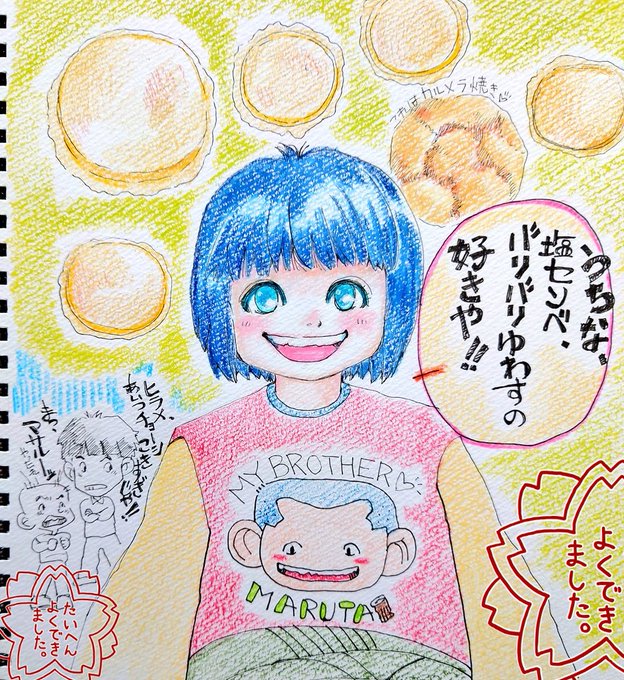 これはカルメラ焼き
うちな、
塩センベ、
バリバリゆわすの
好きや!!
ヒラメ、
あいつチョーシ
こきすぎじゃ!!
まっ、
マサルーッ
MY BROTHER♡
MARUTA
たいへん
よくでき
ました。
よくでき
ました。